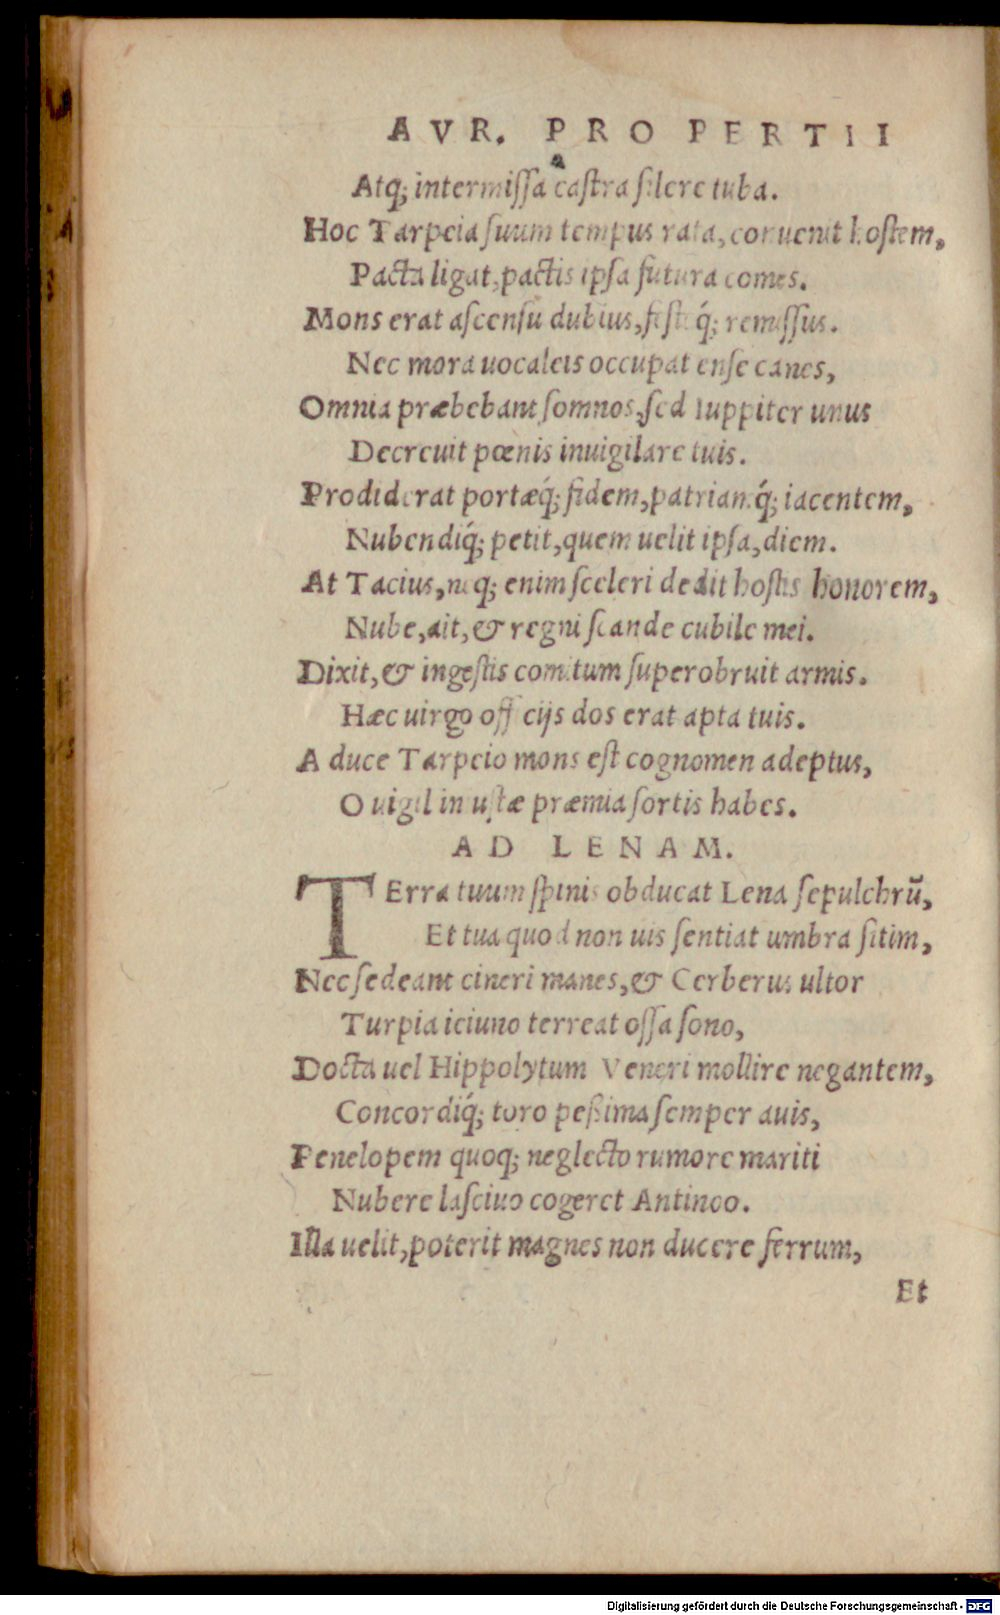 AVR. PROPERTII
Atq; intermiſſa caſtra ſilere tuba.
Hoc Tarpeia ſuum tempus rata, conuenit hoſtem,
Pacta ligat, pactis ipſa futura comes.
Mons erat aſcenſu dubius, feſtoq́; remiſſus.
Nec mora uocaleis occupat enſe canes,
Omnia præbebant ſomnos, ſed Iuppiter unus
Decreuit pœnis inuigilare tuis.
Prodiderat portæq́; fidem, patriamq́; iacentem,
Nubendiq́; petit, quem uelit ipſa, diem.
At Tacius, neq; enim ſceleri dedit hoſtis honorem,
Nube, ait, & regni ſcande cubile mei.
Dixit, & ingeſtis comitum ſuperobruit armis.
Hæc uirgo officijs dos erat apta tuis.
A duce Tarpeio mons eſt cognomen adeptus,
O uigil iniuſtæ præmia ſortis habes.
AD LENAM.
TErra tuum ſpinis obducat Lena ſepulchrū,
Et tua quod non uis ſentiat umbra ſitim,
Nec ſedeant cineri manes, & Cerberus ultor
Turpia ieiuno terreat oſſa ſono,
Docta uel Hippolytum Veneri mollire negantem,
Concordiq́; toro peßima ſemper auis,
Penelopem quoq; neglecto rumore mariti
Nubere laſciuo cogeret Antinoo.
Illa uelit, poterit magnes non ducere ferrum,
Et
Digitalisierung gefördert durch die Deutsche Forschungsgemeinschaft - DFG